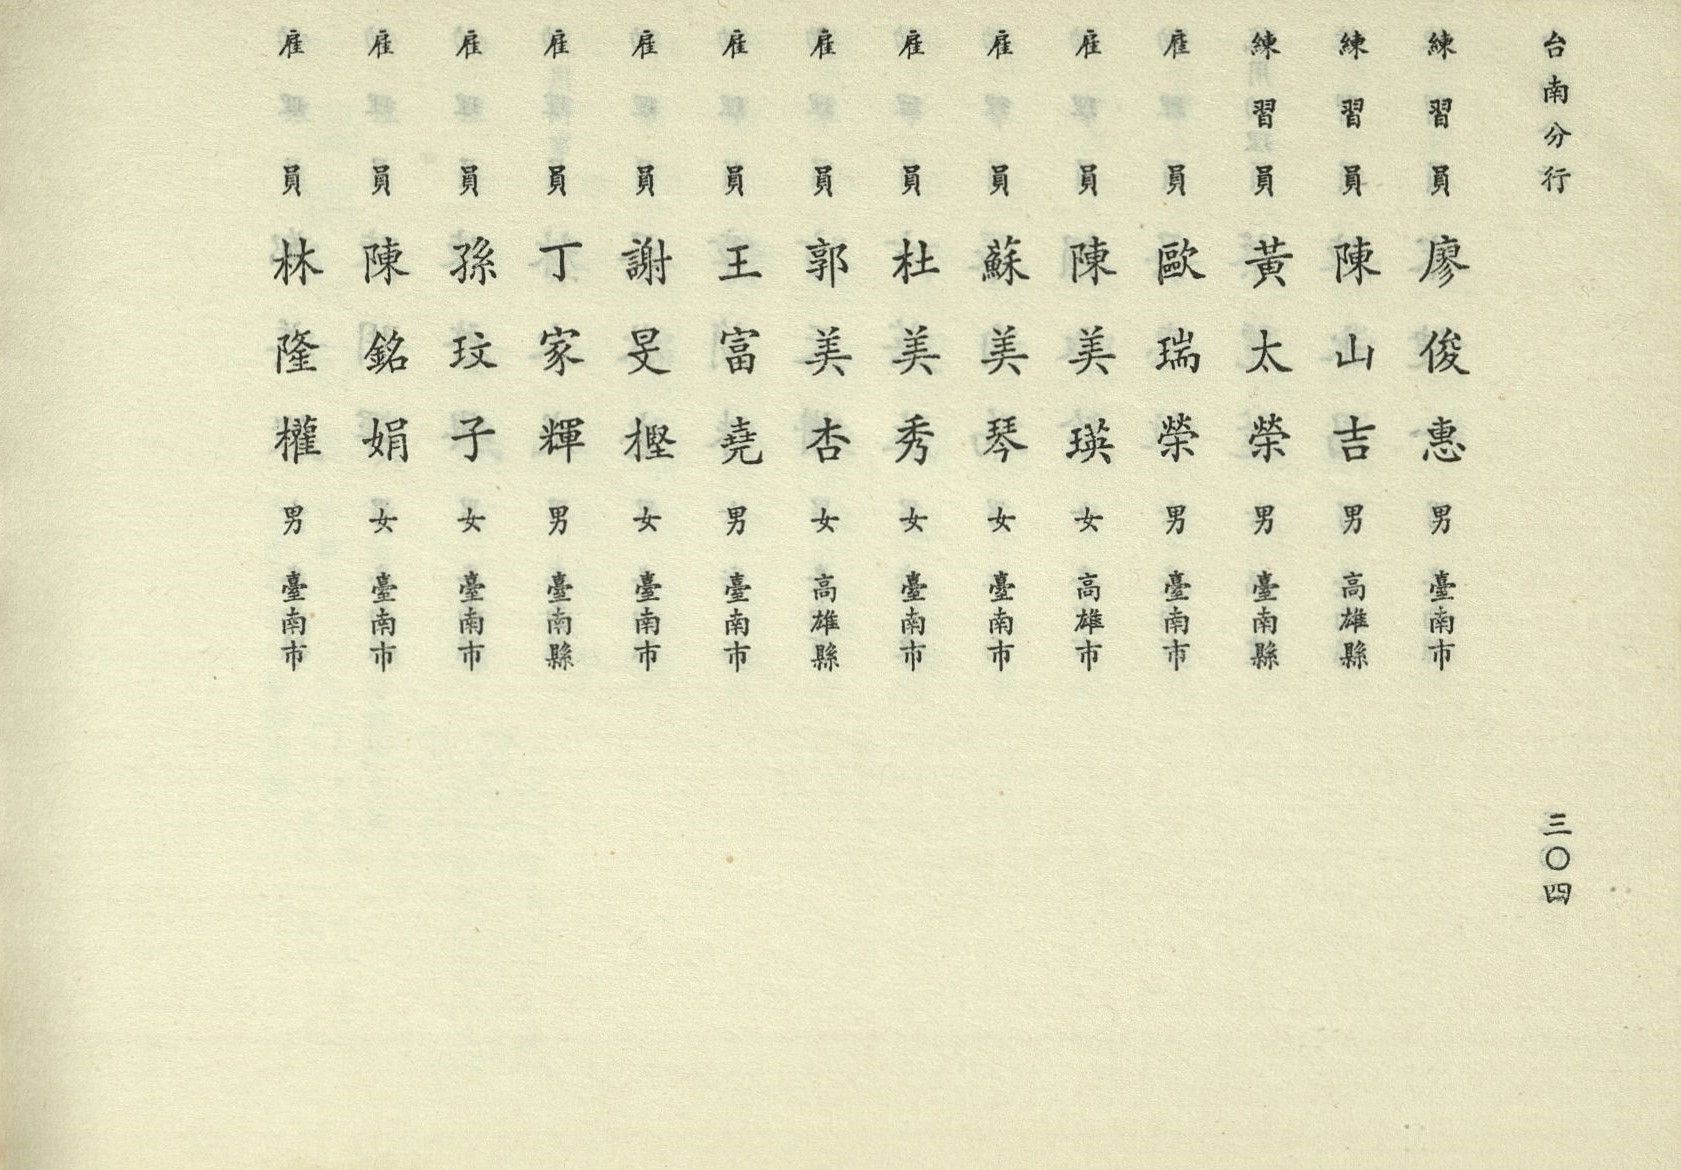 台南分行
練習員 廖俊惠 男 臺南市
練習員 陳山吉 男 高雄縣
練習員 黃太榮 男 臺南縣
雇員 歐瑞榮 男 臺南市
雇員 陳美瑛 女 高雄市
雇員 蘇美琴 女 臺南市
雇員 杜美秀 女 臺南市
雇員 郭美杏 女 高雄縣
雇員 王富堯 男 臺南市
雇員 謝旻樫 女 臺南市
雇員 丁家輝 男 臺南縣
雇員 孫玟子 女 臺南市
雇員 陳銘娟 女 臺南市
雇員 林隆權 男 臺南市
三〇四